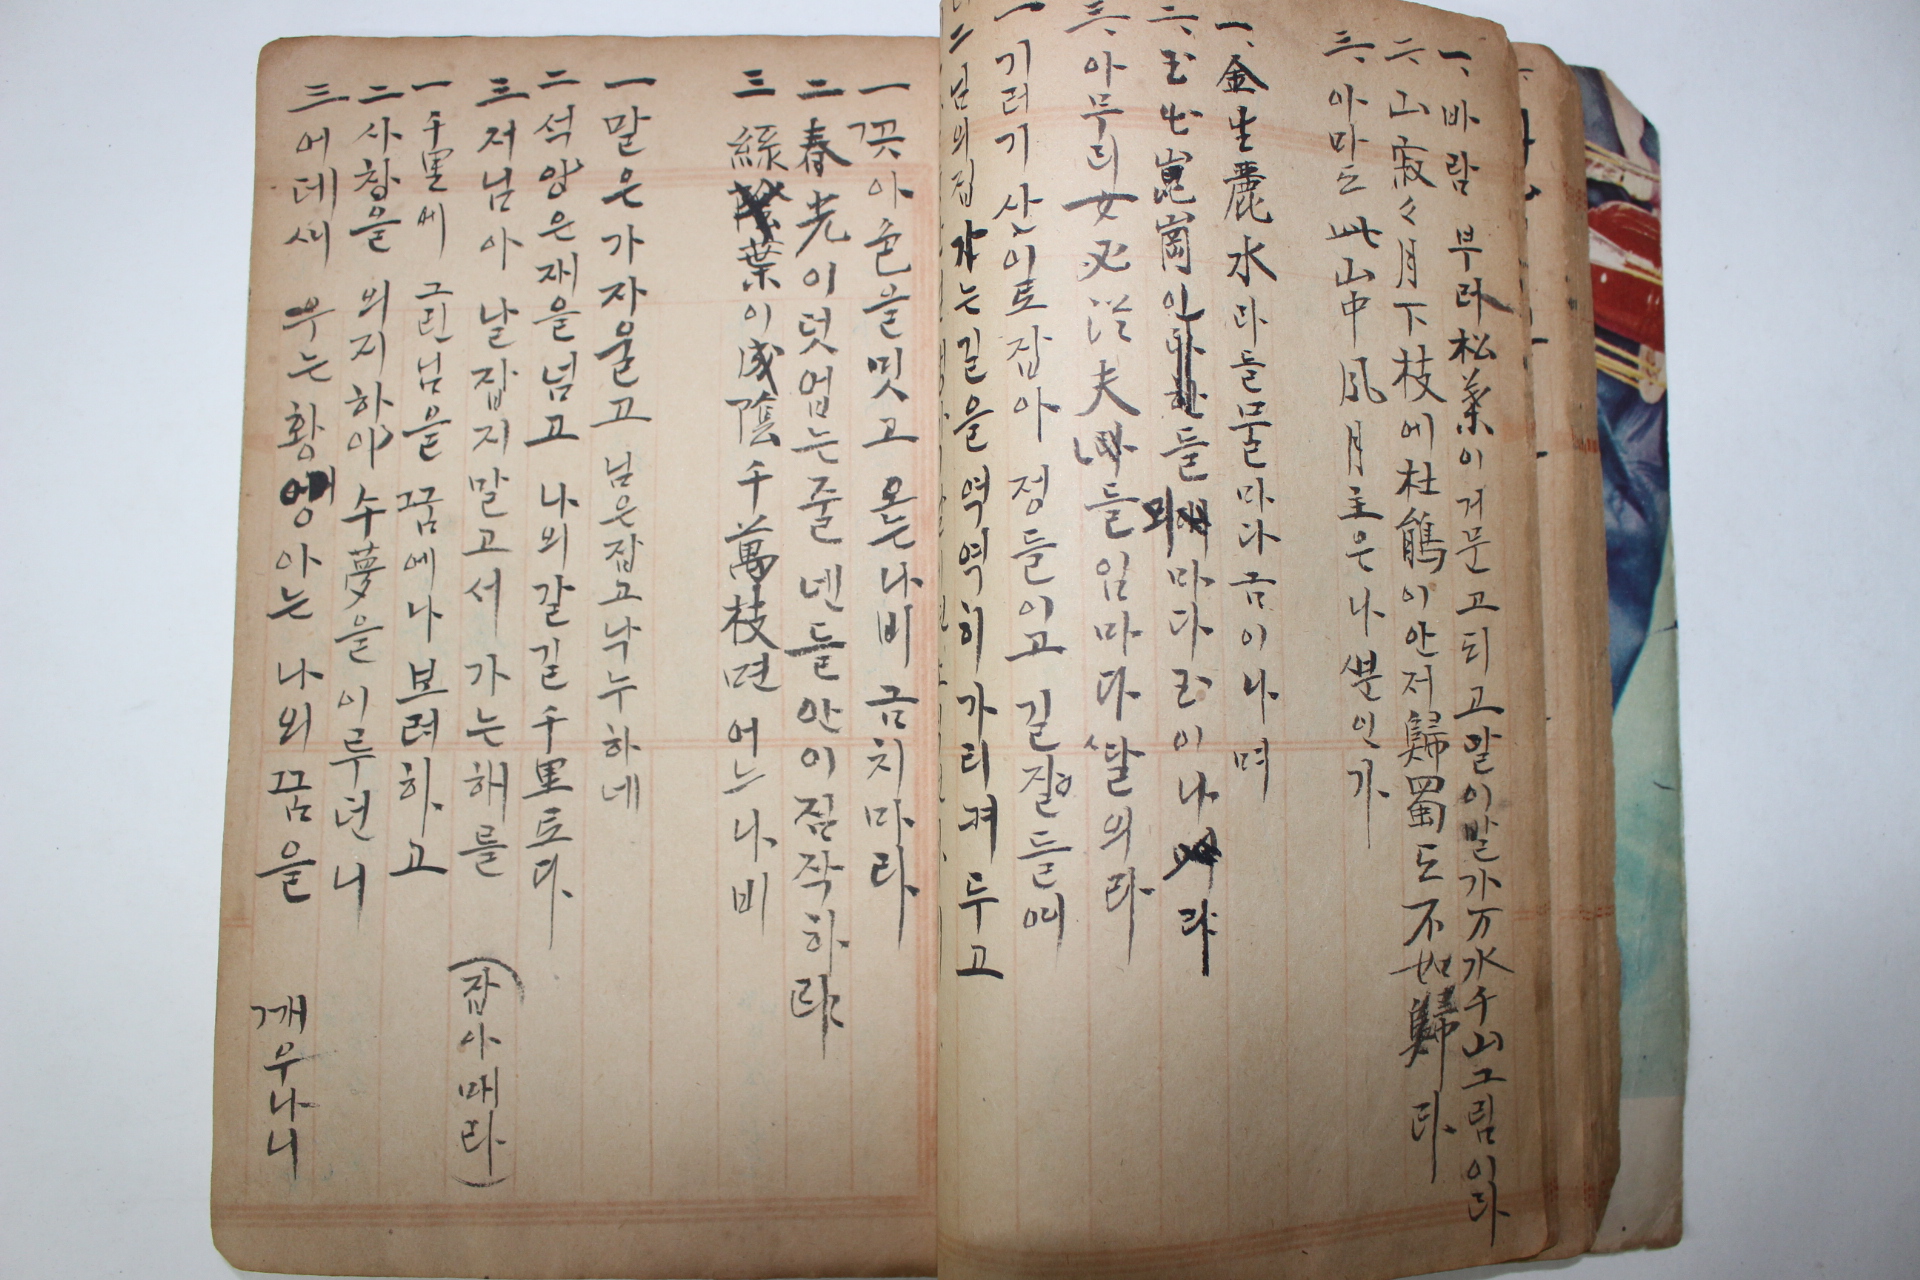 一、바람 부러 松葉이 거문고 되고 말이 말가 万水千山 그림이라
二、山寂々月下枝에 杜鵑이 안저 歸蜀도 不如歸라
三、아마도 此山中風月主은 나뿐인가
一、金生麗水라들 물마다 금이나며
二、玉出崑崗인들 뫼마다 玉이나라
三、아무리 女必從夫들 임마다 딸의랴
一 기러기 산이로 잡아 정들이고 길질들여
二 님의 집 가는 길을 역역히 가리켜 두고
一 꼿아 춘을 밋고 온는 나비 금치마라
二 春光이 덧업는 줄 넨들 안이 짐작하랴
三 綠葉이 成陰千萬枝면 어느 나비
一 말은 가자 울고 님은 잡고 낙누하네
二 석양은 재을 넘고 나의 갈 길 千里로다
三 저 님아 날 잡지 말고서 가는 해를 (잡아매라)
一 千里에 그린 님을 꿈에나 보려하고
二 사창을 의지하야 수夢을 이루던니
三 어데서 우는 황앵아는 나의 꿈을 깨우나니